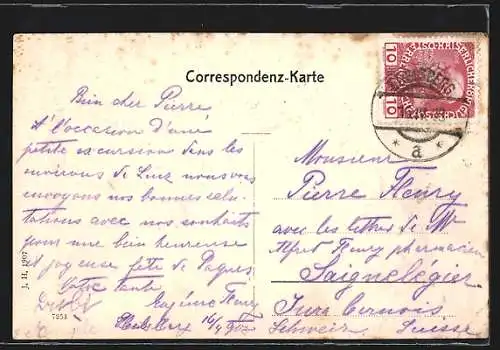 Correspondenz-Karte
Bien cher Pierre
A l'occasion d'une
petite excursion dans les
environs de Linz nous vous
envoyons nos bonnes salu-
tations avec nos souhaits
pour une bien heureuse
et joyeuse fête de Pâques
Votre tante
Fleury
16/4
Monsieur
Pierre Fleury
avec les lettres de Mr
Alfred Fleury pharmacien
Saignelégier
Jura Bernois
Schweiz Suisse
J. H. 1907
7253
10 10
a